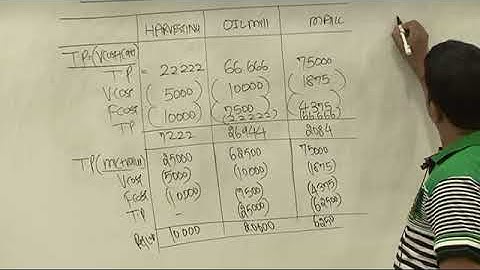 HARVESTING OIL MILL MRILL
TP=(VCost+Cos)
TP = 22222 66.666 75000
VCost (5000) (10000) (1875)
FCost (10000) (7500) (4375)
TP (22222) (66666)
7222 26944 2084
TP (M(+)ollM) 25000 62500 75000
VCost (5000) (10000) (1875)
FCost (10000) (7500) (4375)
TP - (25000) (62500)
10.000 20.000 6250